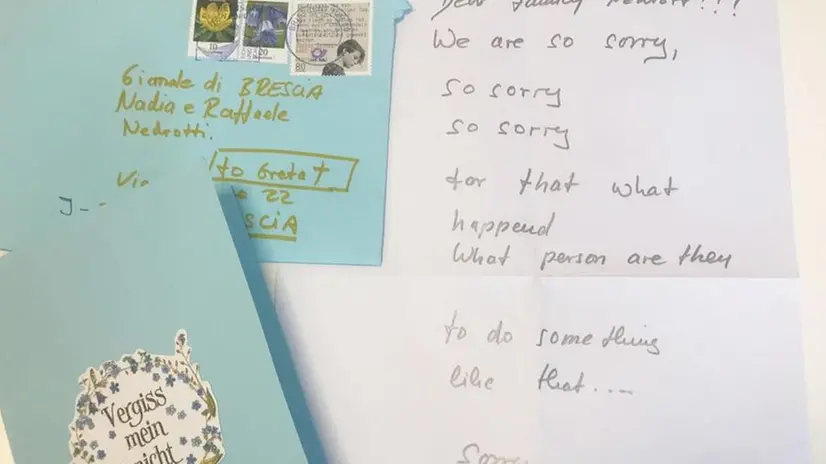 10
20
80
Giornale di BRESCIA
Nadia e Raffaele
Nedrotti.
Via
to Greta †
22
SCiA
Dear Family Nedrotti!!!
We are so sorry,
so sorry
so sorry
for that what
happend
What person are they
to do something
like that....
Sorry
Vergiss
mein
nicht